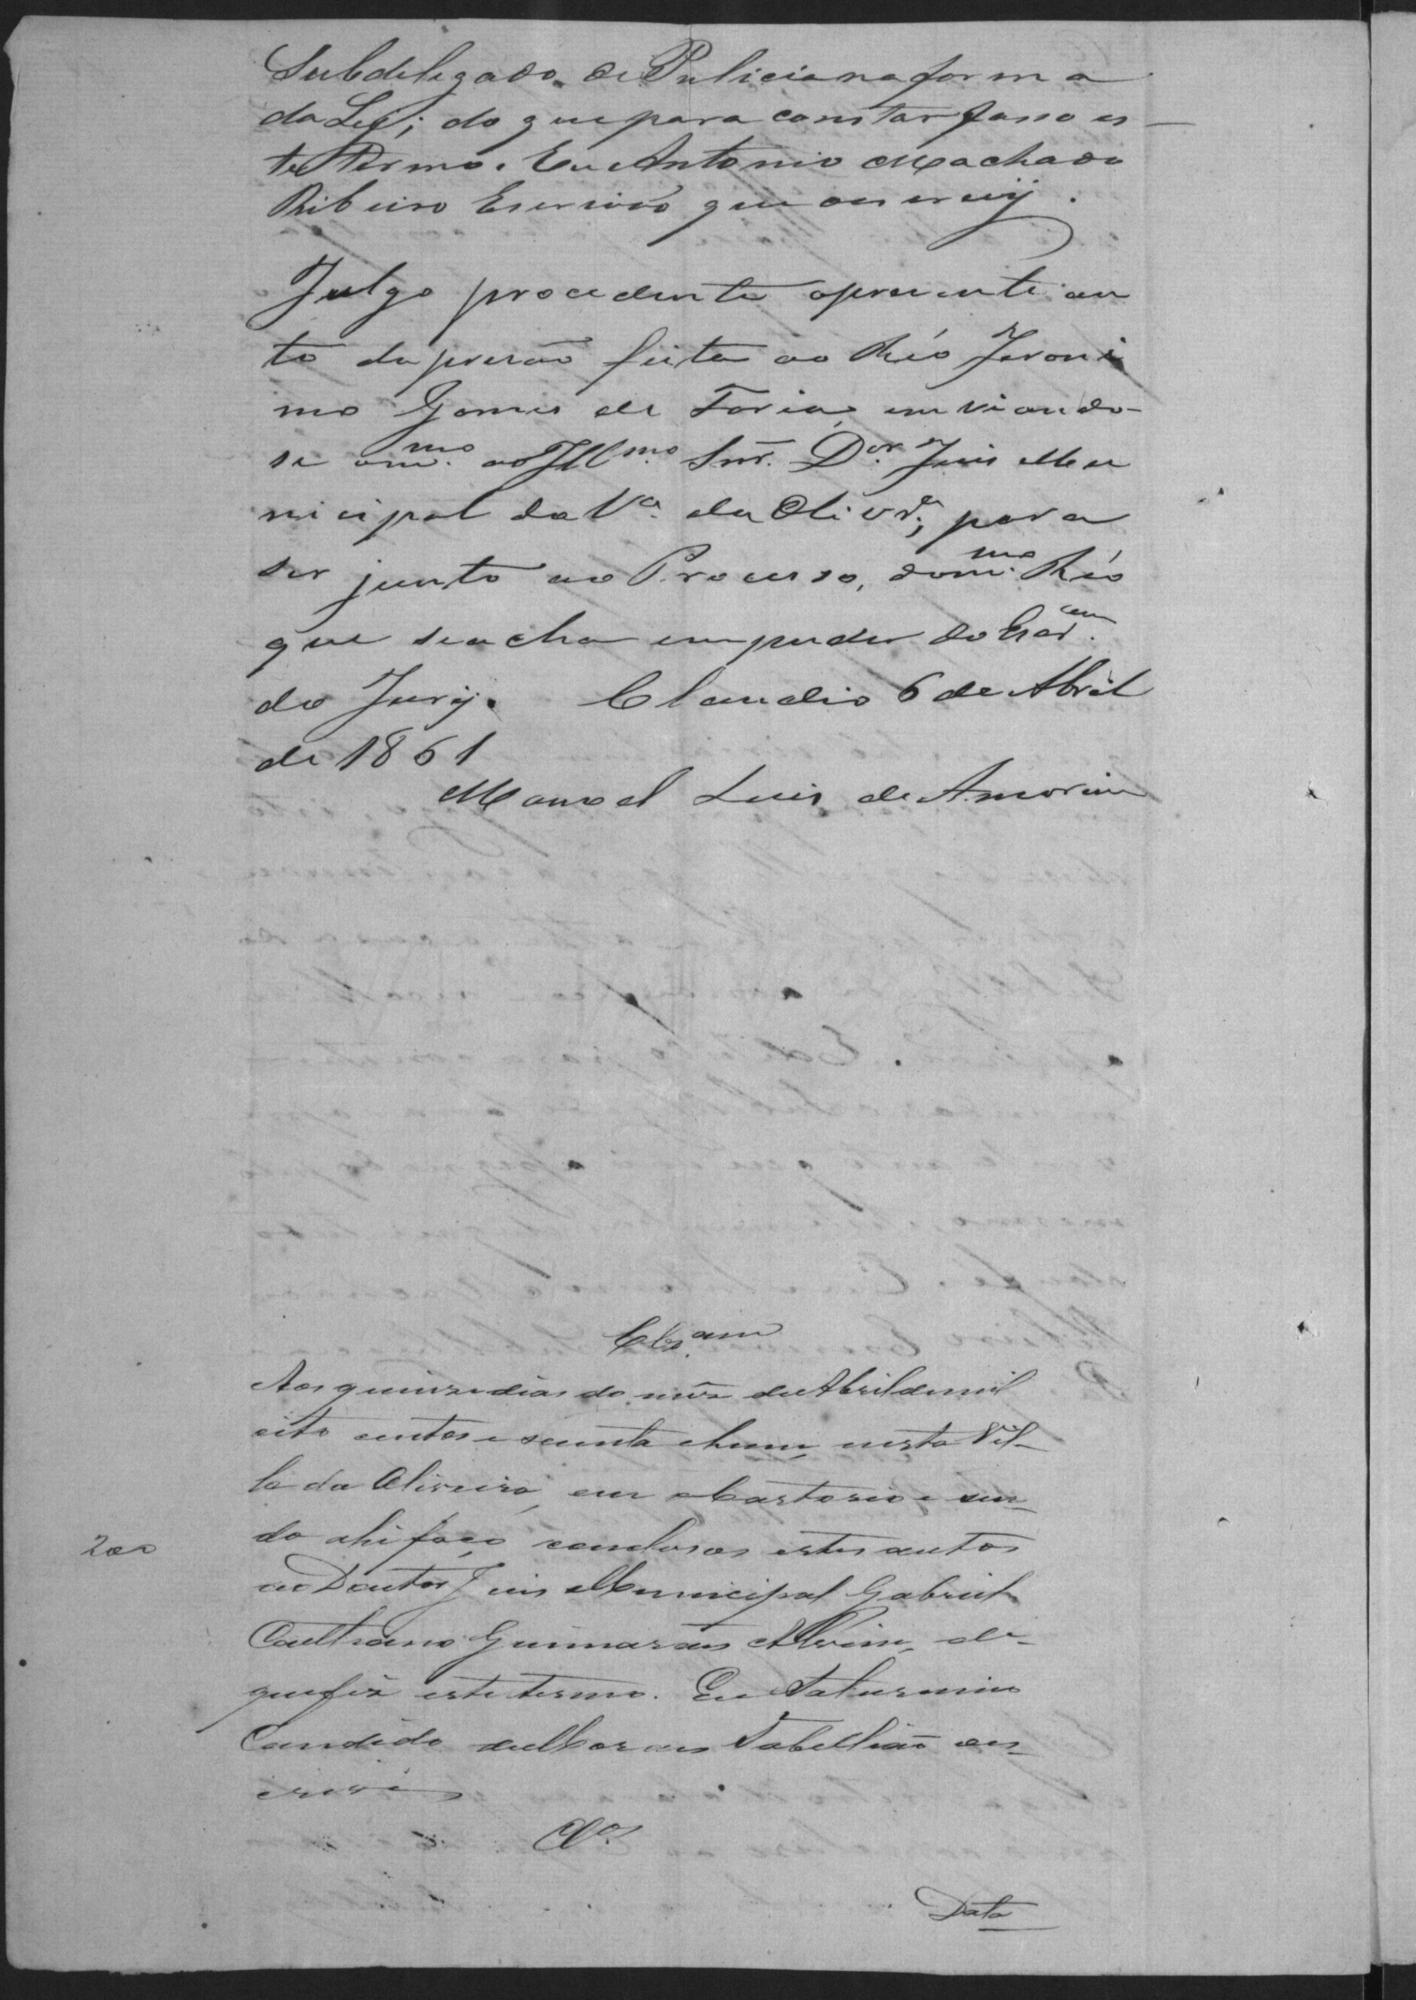 Subdelegado de Puliciana forma
da Ley; do que para constar fasso es-
te Termo. Eu Antonio Machado
Ribeiro Escrivão que oescrevy.
Julgo procedente opresente au
to da presão feita ao Réo Jeroni
mo Gomes de Faria, enviando-
se om.mo ao Ill.mo Snr. D.or Juis Mu
nicipal da V.a da Olivr.a, para
ser junto ao Processo, dom.mo Réo
que seacha empuder do Escr.am
do Jury. Claudio 6 de Abril
de 1861
Manoel Luis de Amorim
Cls.am
Aos quinze dias do mez de Abril de mil
oito centos e secenta ehum, nesta Vil-
la da Oliveira, em Cartorio e sen-
do ahi faço conclusos estes autos
200
ao Doutor Juis Municipal Gabriel
Caetano Guimarães Alvim, de
que fiz este termo. Eu Saturnino
Candido de Moraes Tabellião es-
crevi
Cl.os
Data